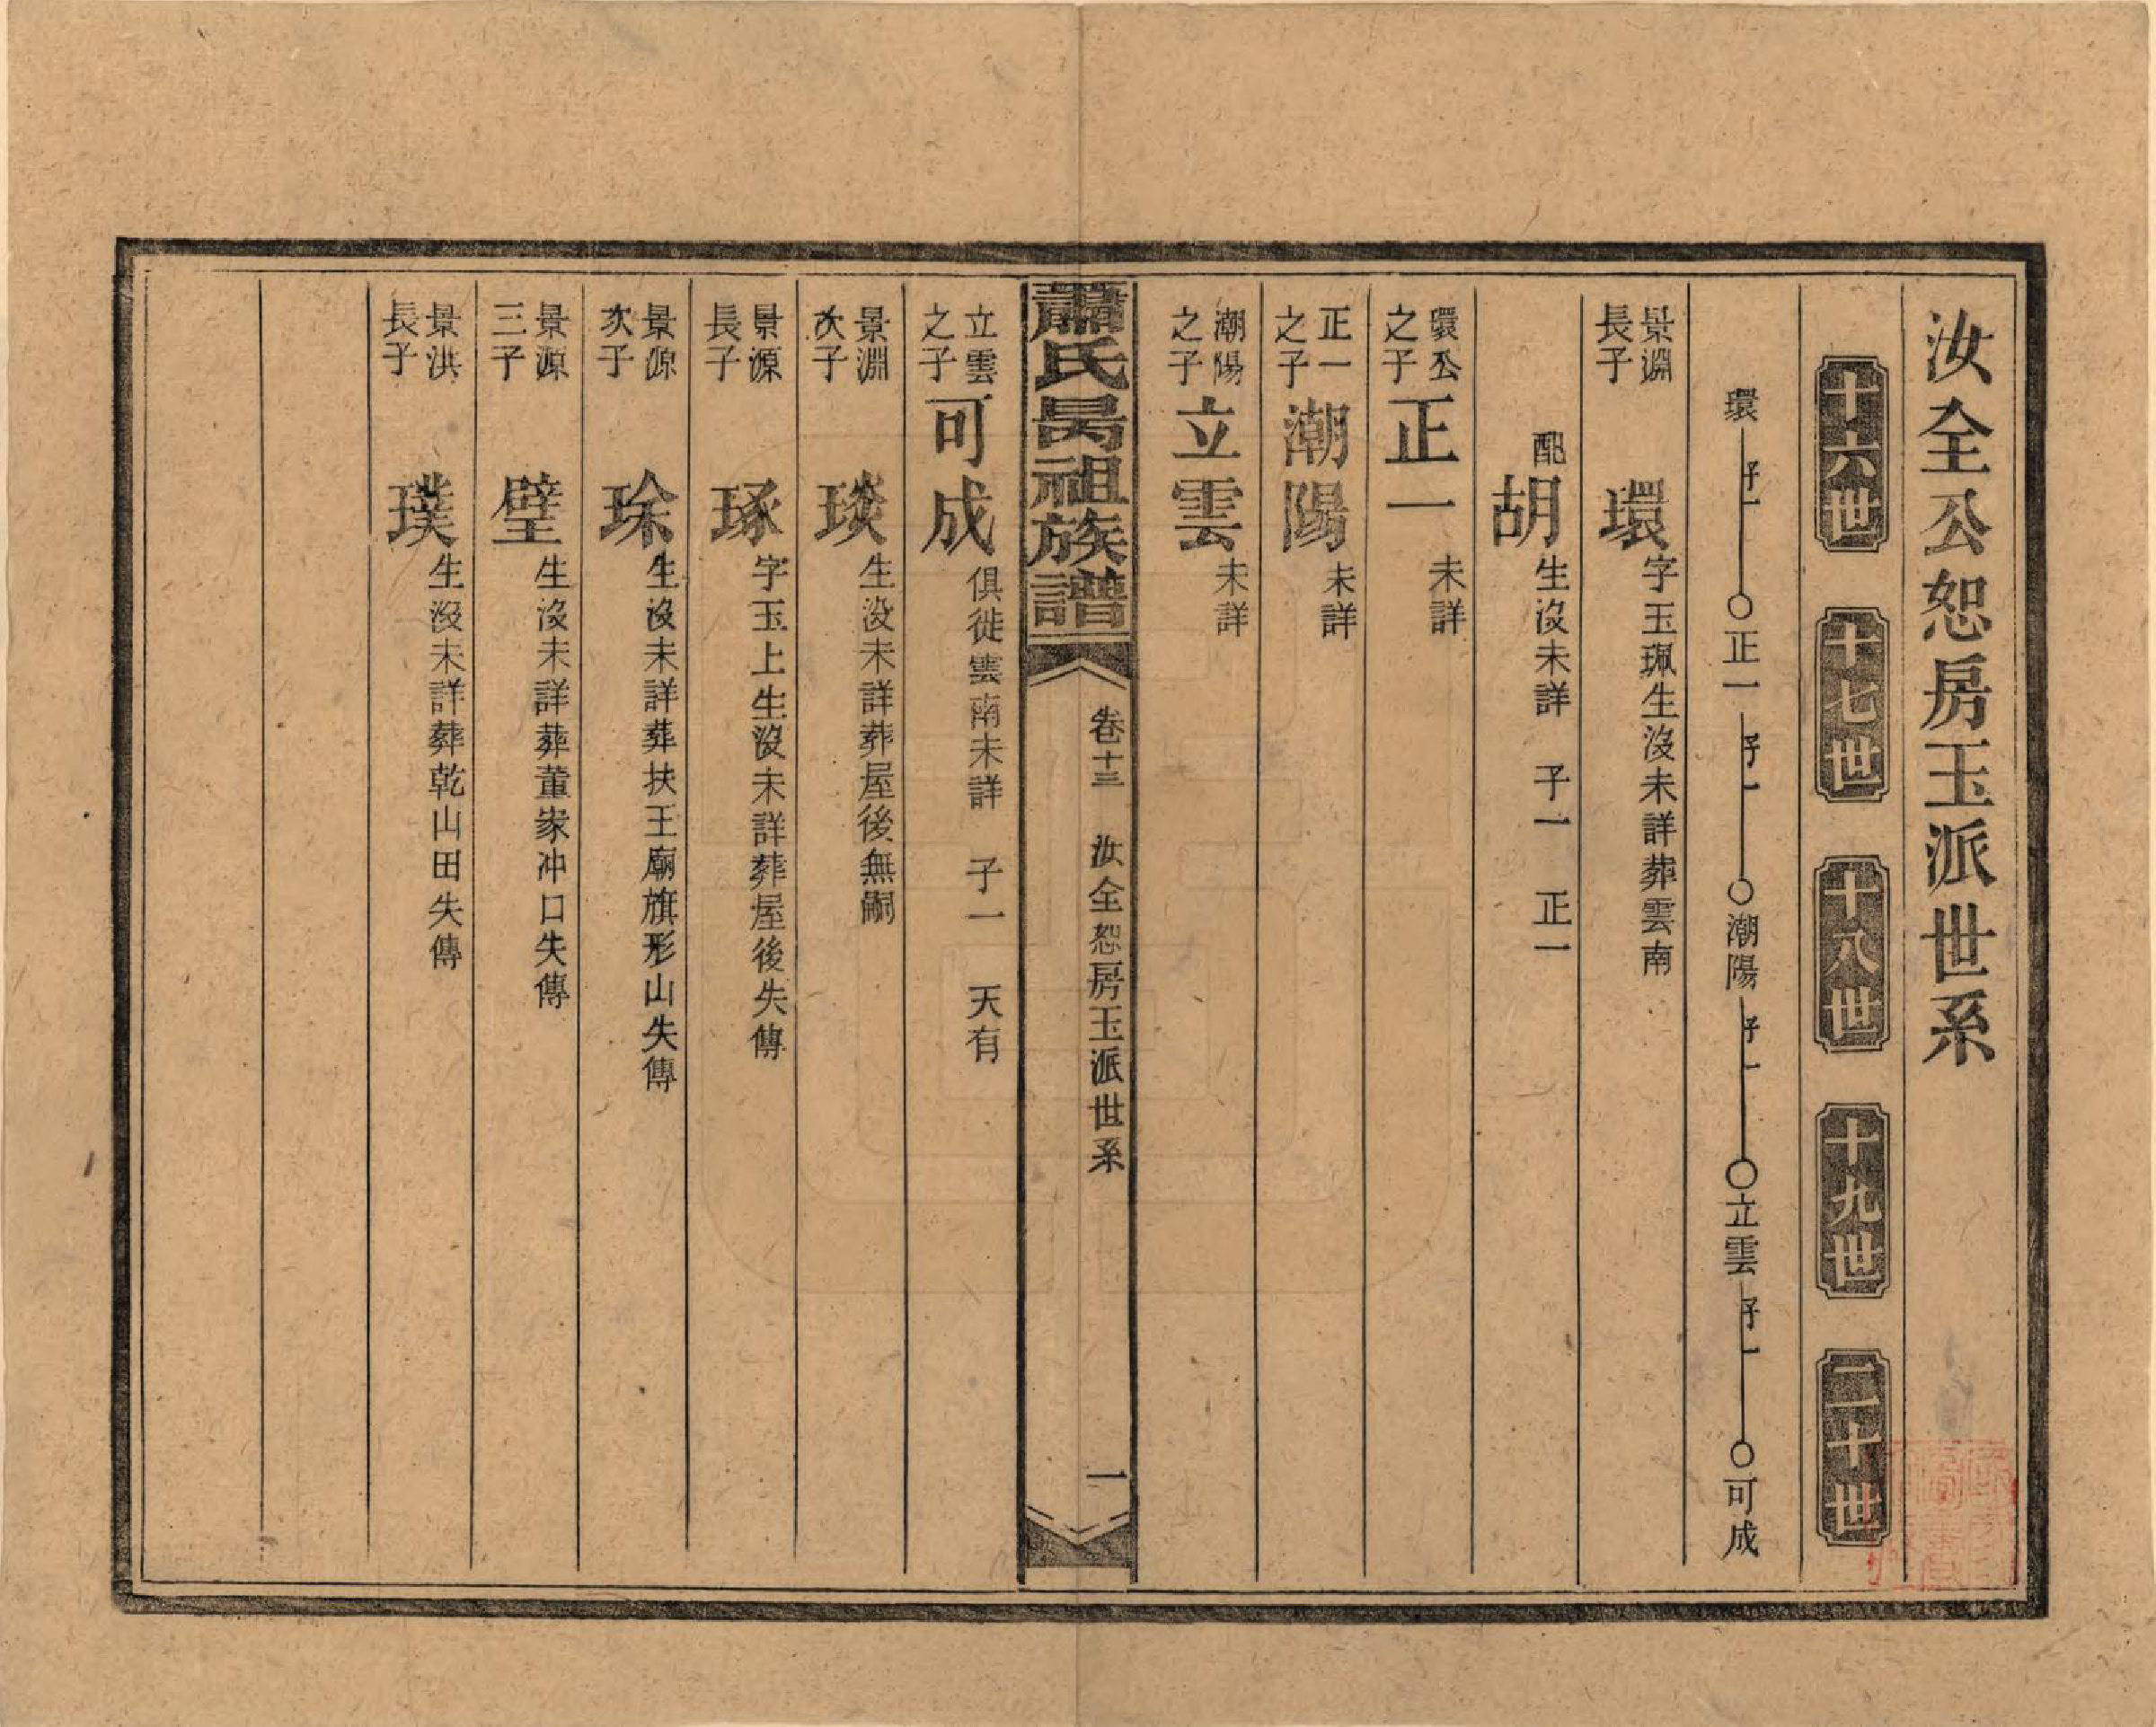 汝全公恕房玉派世系
十六世 十七世 十八世 十九世 二十世
環 子一 正一 子一 潮陽 子一 立雲 子一 可成
景淵長子 環 字玉珮生沒未詳葬雲南
配 胡 生沒未詳 子一 正一
環公之子 正一 未詳
正一之子 潮陽 未詳
潮陽之子 立雲 未詳
蕭氏昺祖族譜 卷十三 汝全恕房玉派世系 一
立雲之子 可成 俱徙雲南未詳 子一 天有
景淵次子 琰 生沒未詳葬屋後無嗣
景源長子 琢 字玉上生沒未詳葬屋後失傳
景源次子 琜 生沒未詳葬扶王廟旗形山失傳
景源三子 璧 生沒未詳葬董家冲口失傳
景洪長子 璞 生沒未詳葬乾山田失傳